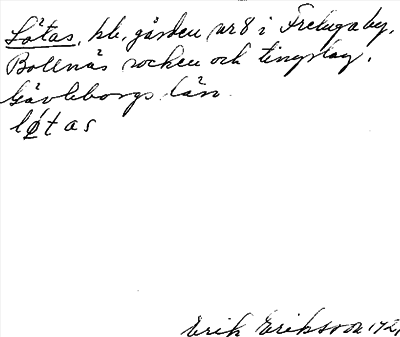 Låtas, hb. gården nr 8 i Freluga by,
Bollnäs socken och tingslag,
Gävleborgs län.
låtas
Erik Eriksson 1721